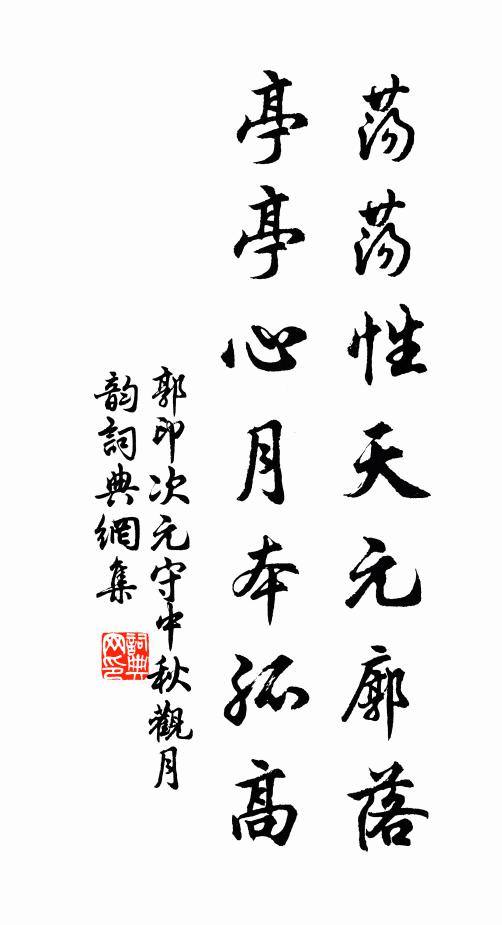 荡荡性天元廓落
亭亭心月本孤高
郭印次元守中秋觀月
韵詞典網集
詞典网印